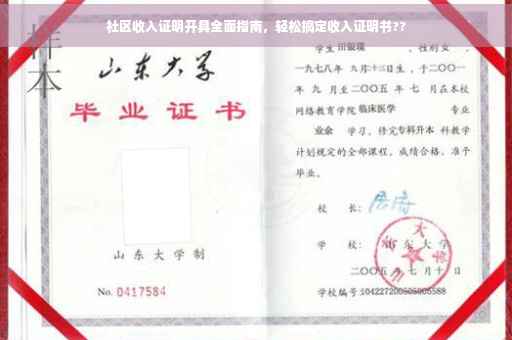 社区收入证明开具全面指南，轻松搞定收入证明书??
样本
山东大学
毕业证书
山东大学制
No. 0417584
学生田银瑞，性别女，
一九七八年九月十二日生，于二〇〇一
年九月至二〇〇五年七月在本校
网络教育学院临床医学专业
业余学习，修完专科升本科教学
计划规定的全部课程，成绩合格，准予
毕业。
校长：
学校：山东大学
二〇〇五年七月十日
学校编号:104227200505005588